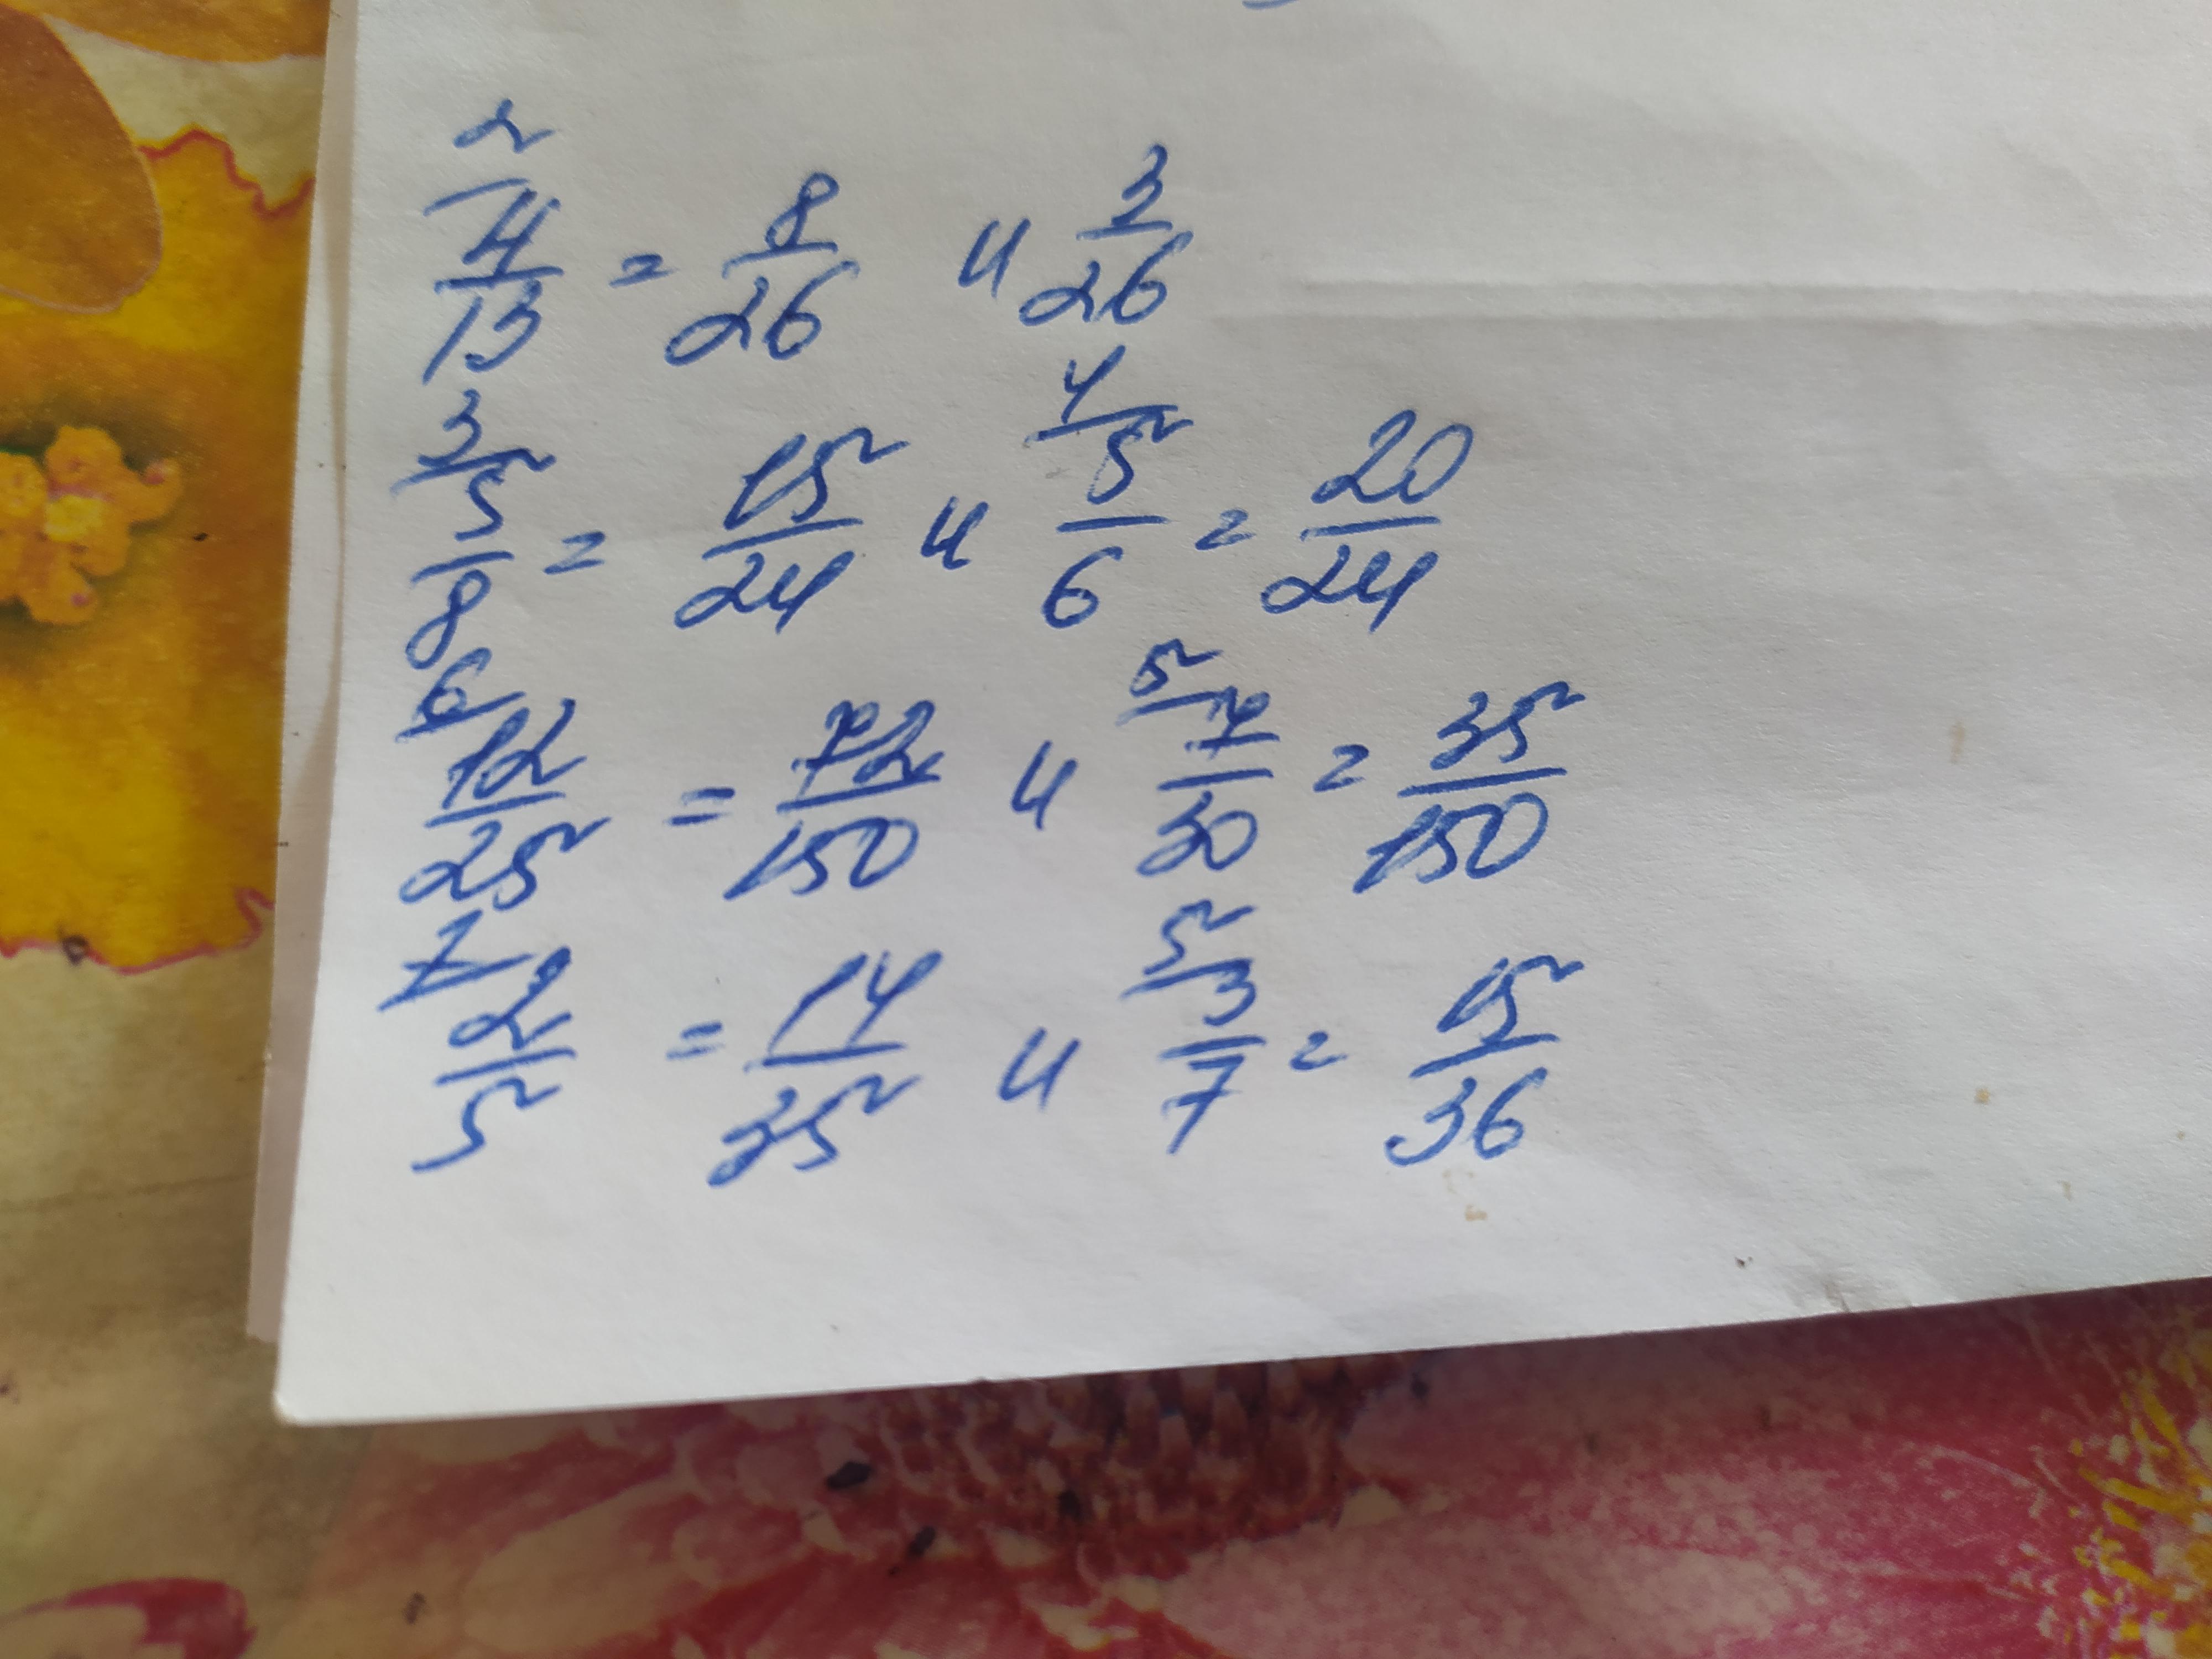 2
4/13 = 8/26 и 3/26
3 4
5/8 = 15/24 и 5/6 = 20/24
6 5
12/25 = 72/150 и 7/30 = 35/150
7 5
2/5 = 14/35 и 3/7 = 15/36